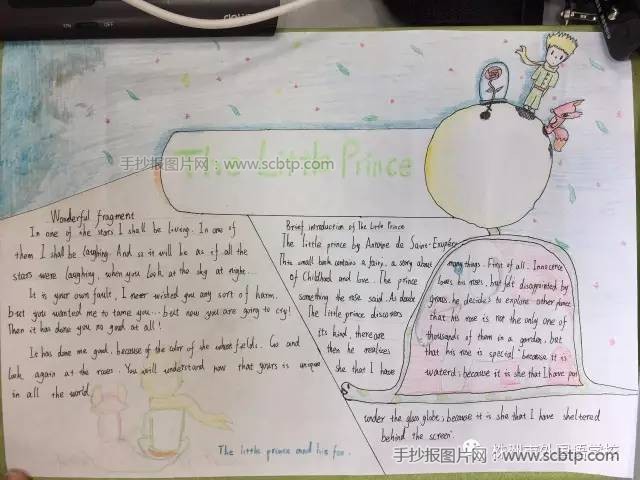 手抄报图片网：www.scbtp.com
The Little Prince
Wonderful fragment
In one of the stars I shall be living. In one of
them I shall be laughing. And so it will be as if all the
stars were laughing, when you look at the sky at night...
It is your own fault, I never wished you any sort of harm,
but you wanted me to tame you... but now you are going to cry!
Then it has done you no good at all!
It has done me good, because of the color of the wheat fields. Go and
look again at the roses. You will understand now that yours is unique
in all the world.
The little prince and his fox.
Brief introduction of The Little Prince
The little prince by Antoine de Saint-Exupéry
This small book contains a fairy, a story about many things. First of all, Innocence
of Childhood and love. The prince loves his roses, but felt disappointed by
something the rose said. As doubt grows, he decides to explore other planet.
The little prince discovers that his rose is not the only one of
its kind, there are thousands of them in a garden, but
then he realizes that his rose is special "because it is
she that I have waterd; because it is she that I have put
under the glass globe; because it is she that I have sheltered
behind the screen.
株洲市外国语学校
手抄报图片网：www.scbtp.com